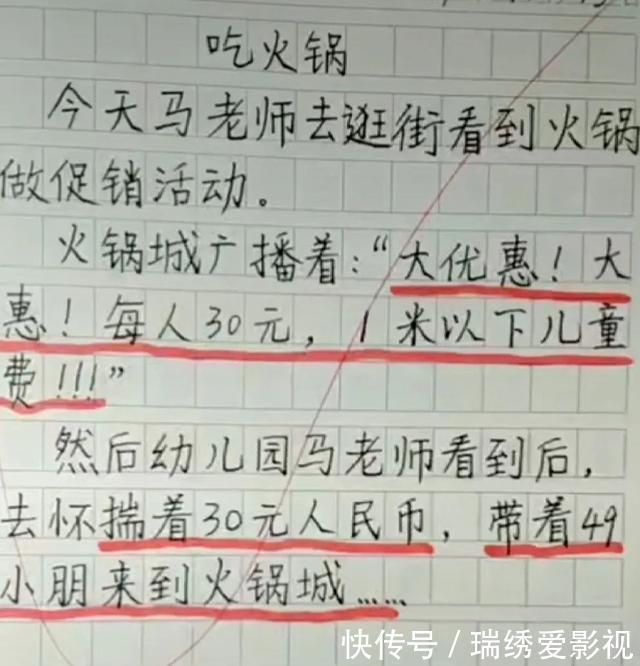 吃火锅
今天马老师去逛街看到火锅
做促销活动。
火锅城广播着:“大优惠!大
惠!每人30元,1米以下儿童
费!!!”
然后幼儿园马老师看到后,
去怀揣着30元人民币,带着49
小朋来到火锅城……
快传号/瑞绣爱影视